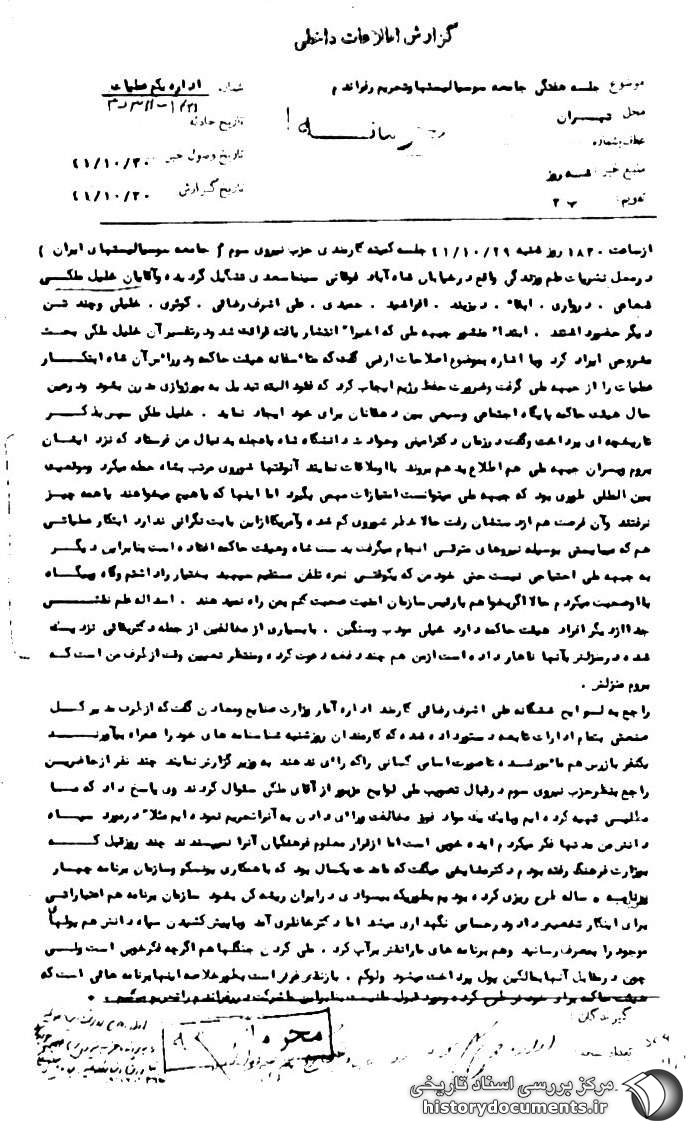 گزارش اطلاعات داخلی
موضوع جلسه هفتگی جامعه سوسیالیستها و تحریم رفراندم
شماره اداره یکم عملیات
محل تهران
تاریخ حادثه
عطف بشماره
منبع خبر شنبه روز
تاریخ وصول خبر ۴۱/۱۰/۳۰
تقویم ب ۲
تاریخ گزارش ۴۱/۱۰/۳۰
از ساعت ۱۸۳۰ روز شنبه ۴۱/۱۰/۲۹ جلسه کمیته کارمندی حزب نیروی سوم ( جامعه سوسیالیستهای ایران )
در محل نشریات علم و زندگی واقع در خیابان شاه آباد فوقانی سینما سعدی تشکیل گردیده و آقایان خلیل ملکی
شجاعی . درواری . . . افراشید . حمیدی . علی اشرف رضائی . کوثری . خلیلی و چند تن
دیگر حضور داشتند . ابتدا منشور جبهه ملی که اخیرا انتشار یافته قرائت شد و در تفسیر آن خلیل ملکی بحث
مشروحی ایراد کرد وبا اشاره بموضوع اصلاحات ارضی گفت که متاسفانه هیئت حاکمه و در راس آن شاه ابتکار
عملیات را از جبهه ملی گرفت وضرورت حفظ رژیم ایجاب کرد که فئودالیته تبدیل به بورژوازی مدرن بشود و در عین
حال هیئت حاکمه پایگاه اجتماعی وسیعی بین دهقانان برای خود ایجاد نماید . خلیل ملکی سپس بذکر
تاریخچه ای پرداخت وگفت در زمان دکتر امینی وحوادث دانشگاه شاه باعجله بدنبال من فرستاد که نزد ایشان
بروم وبسران جبهه ملی هم اطلاع بدهم بروند با او ملاقات نمایند آنوقتها شوروی مرتب بشاه حمله میکرد وموقعیت
بین المللی طوری بود که جبهه ملی میتوانست امتیازات مهمی بگیرد اما اینها که یا هیچ میخواهند یا همه چیز
نرفتند وآن فرصت هم از دستشان رفت حالا خطر شوروی کم شده وآمریکا از این بابت نگرانی ندارد ابتکار عملیاتی
هم که میبایستی بوسیله نیروهای مترقی انجام میگرفت بدست شاه وهیئت حاکمه افتاده است بنابراین دیگر
به جبهه ملی احتیاجی نیست حتی خود من که یکوقتی نمره تلفن مستقیم سپهبد بختیار را داشتم وگاه وبیگاه
با او صحبت میکردم حالا اگر بخواهم با رئیس سازمان امنیت صحبت کنم بمن راه نمیدهند . اسداله علم نقشی
جدا از دیگر افراد هیئت حاکمه دارد خیلی مودب وسنگین . با بسیاری از مخالفین از جمله دکتر بقائی نزدیک
شده و در منزلش بآنها ناهار داده است از من هم چند دفعه دعوت کرده ومنتظر تعیین وقت از طرف من است که
بروم منزلش .
راجع به لوایح ششگانه علی اشرف رضائی کارمند اداره آمار وزارت صنایع ومعادن گفت که از طرف مدیر کل
صنعتی بتمام ادارات تابعه دستور داده شده که کارمندان روز شنبه شناسنامه های خود را همراه بیاورند
یکنفر بازرس هم مامور شده تا صورت اسامی کسانی را که رای ندهند به وزیر گزارش نمایند چند نفر از حاضرین
راجع بنظر حزب نیروی سوم در قبال تصویب ملی لوایح مزبور از آقای ملکی سئوال کردند وی پاسخ داد که ما
مطلبی تهیه کرده ایم وبا یک یک مواد فوق مخالفت و رای دادن به آنرا تحریم نموده ایم مثلا در مورد سپاه
دانش من مدتها فکر میکردم ایده خوبی است اما از قرار معلوم فرهنگیان آنرا نمیپسندند چند روز قبل که
بوزارت فرهنگ رفته بودم دکتر مشایخی میگفت که مدت یکسال بود که با همکاری یونسکو وسازمان برنامه چهار
برنامه ۵ ساله طرح ریزی کرده بودیم بطوریکه بیسوادی در ایران ریشه کن بشود سازمان برنامه هم اعتباراتی
برای اینکار تخصیص داد و در حسابی نگهداری میشد اما دکتر خانلری آمد وبا پیش کشیدن سپاه دانش هم پولهای
موجود را بمصرف رسانید وهم برنامه های ما را نقش بر آب کرد . ملی کردن جنگلها هم اگر چه فکر خوبی است ولی
چون در مقابل آنها بمالکین پول پرداخت میشود ولو کم . باز نظر غرض است بطور خلاصه اینها برنامه هائی است که
هیئت حاکمه برای خود طرح کرده و مورد قبول ما نیست بنابراین ما شرکت در رفراندم را تحریم میکنیم .
گیرندگان :
تعداد نسخه
محرمانه
مرکز بررسی اسناد تاریخی
historydocuments.ir